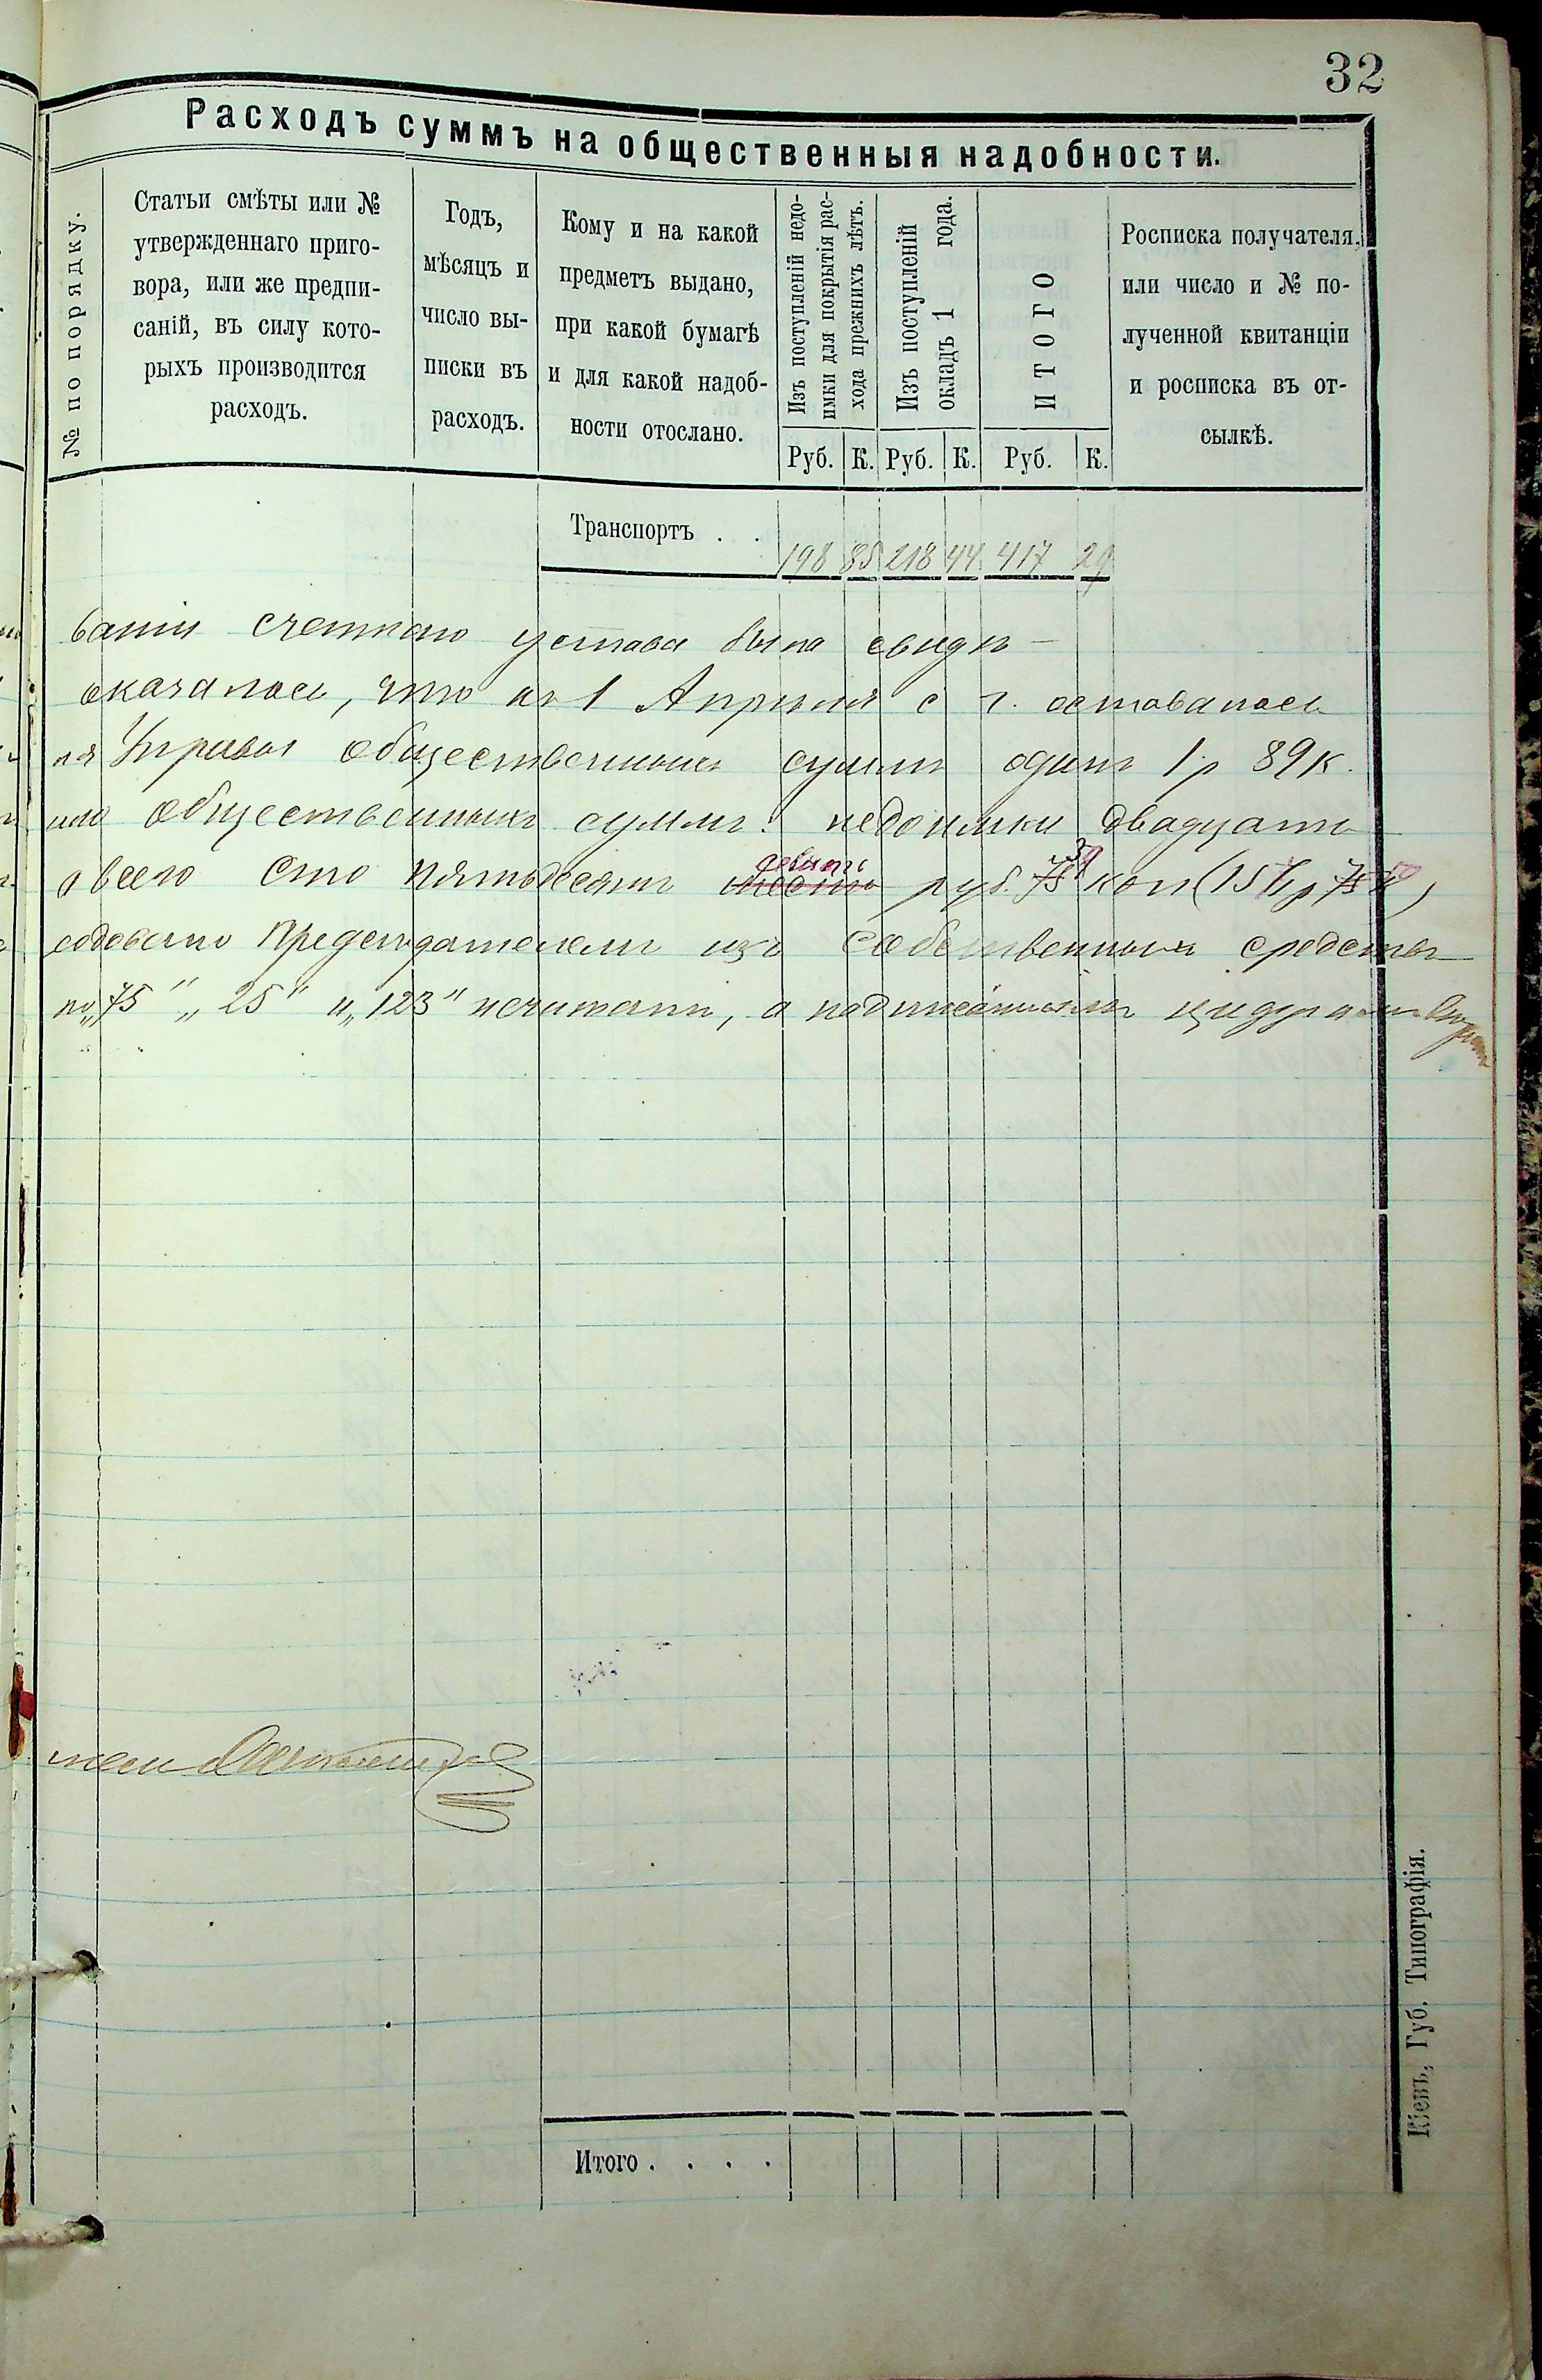 32
Расходъ суммъ на общественныя надобности.
№ по порядку.
Статьи смѣты или №
утвержденнаго приго-
вора, или же предпи-
саній, въ силу кото-
рыхъ производится
расходъ.
Годъ,
мѣсяцъ и
число вы-
писки въ
расходъ.
Кому и на какой
предметъ выдано,
при какой бумагѣ
и для какой надоб-
ности отослано.
Изъ поступленій недо-
имки для покрытія рас-
хода прежнихъ лѣтъ.
Изъ поступленій
окладъ 1 года.
ИТОГО
Росписка получателя,
или число и № по-
лученной квитанціи
и росписка въ от-
сылкѣ.
Руб. К. Руб. К. Руб. К.
Транспортъ . . 198 85 218 44 417 29
ваніи счетнаго устава была свидѣ-
оказалось, что къ 1 Апрѣля с г. оставалось
ня Управы общественныхъ суммъ одинъ 1 р 89 к.
ило общественныхъ суммъ: недоимки двадцать
а всего сто пятьдесятъ шесть девять руб. 75 39 коп (15 р 75 к)
Предсѣдателемъ изъ собственныхъ средствъ
по „75" „25" и „123" нечитать, а надписаннымъ цифрамъ
Итого . . . .
Кіевъ, Губ. Типографія.